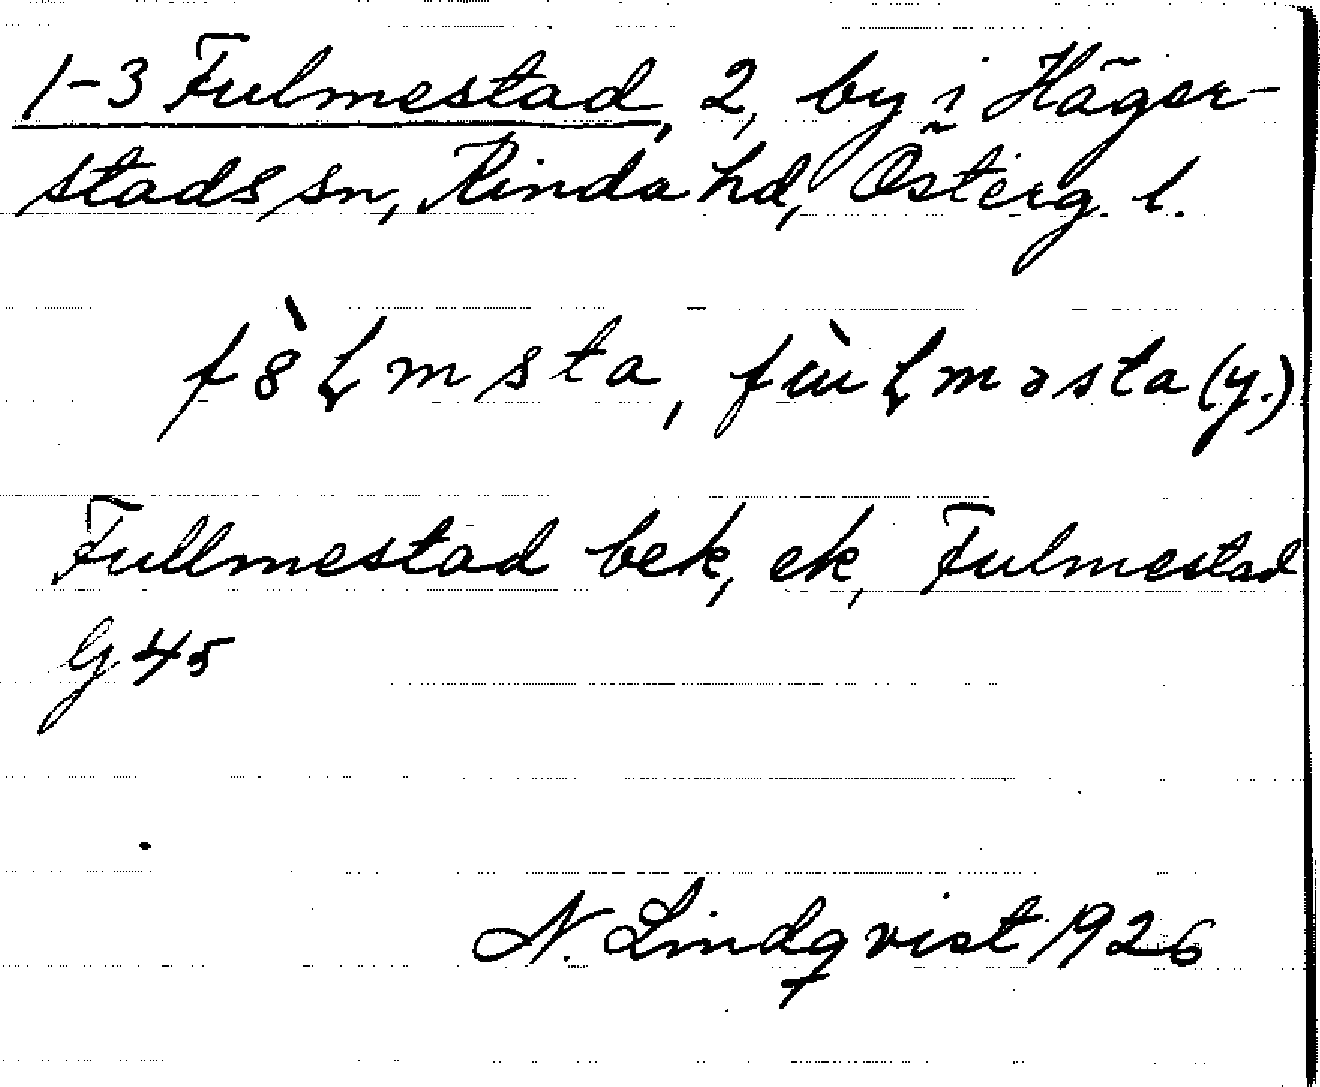 1-3 Fulmestad, 2, by i Häger-
stads sn, Kinda hd, Österg. l.
f8̀ɽmsta, fùɽməsta (y.)
Fullmestad bek, ek, Fulmestad
G 45
N. Lindqvist 1926